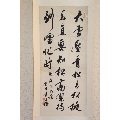 大雪壓青松青松挺
且直要知松高潔待
到雪化時